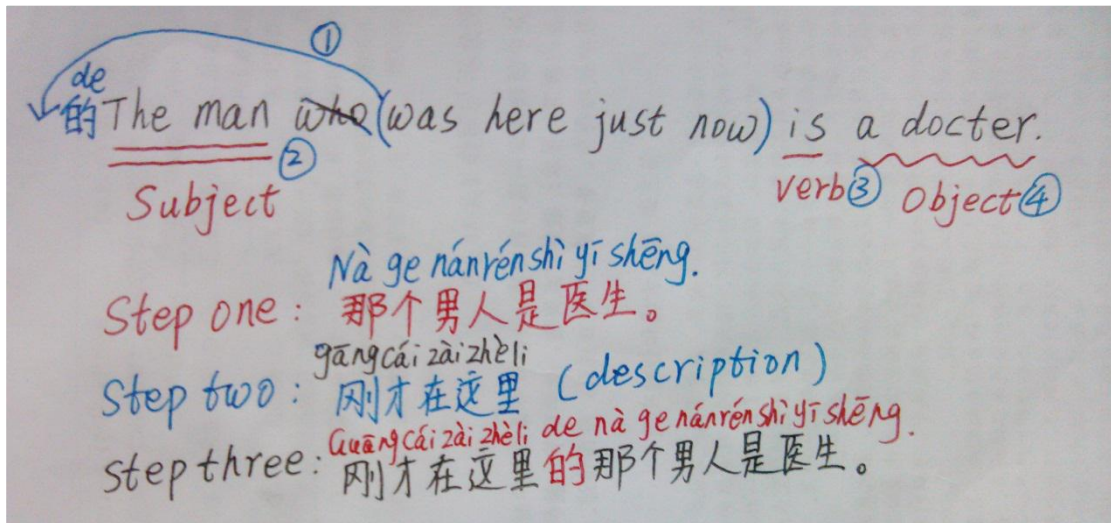 ①
de
的The man who (was here just now) is a docter.
② verb③ Object④
Subject
Nà ge nánrén shì yī shēng.
Step one: 那个男人是医生。
gāngcái zài zhèli
Step two: 刚才在这里 (description)
Guāngcái zài zhèli de nà ge nánrén shì yī shēng.
step three: 刚才在这里的那个男人是医生。